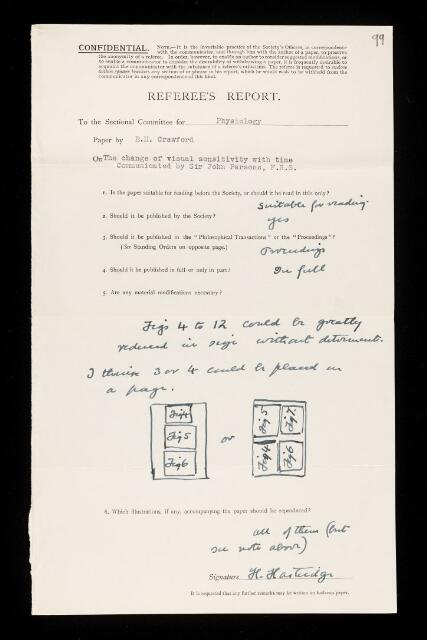 99
CONFIDENTIAL. NOTE.—It is the invariable practice of the Society's Officers, in correspondence
with the communicator, and through him with the author of a paper, to preserve
the anonymity of a referee. In order, however, to enable an author to consider suggested modifications, or
to enable a communicator to consider the desirability of withdrawing a paper, it is frequently desirable to
acquaint the communicator with the substance of a referee's criticism. The referee is requested to
enclose within brackets any section or phrase in his report, which he would wish to be withheld from the
communicator in any correspondence of this kind.
REFEREE'S REPORT.
To the Sectional Committee for Physiology
Paper by B.H. Crawford
On The change of visual sensitivity with time
Communicated by Sir John Parsons, F.R.S.
1. Is the paper suitable for reading before the Society, or should it be read in title only?
Suitable for reading.
2. Should it be published by the Society?
yes
3. Should it be published in the "Philosophical Transactions" or the "Proceedings"?
(See Standing Orders on opposite page.)
Proceedings
4. Should it be published in full or only in part?
In full
5. Are any material modifications necessary?
Figs 4 to 12 could be greatly
reduced in size without detriment.
I think 3 or 4 could be placed on
a page.
Fig 4
Fig 5
Fig 6
or
Fig 5
Fig 7
Fig 4
Fig 6
6. Which illustrations, if any, accompanying the paper should be reproduced?
all of them (but
see note above)
Signature H. Hartridge
It is requested that any further remarks may be written on foolscap paper.